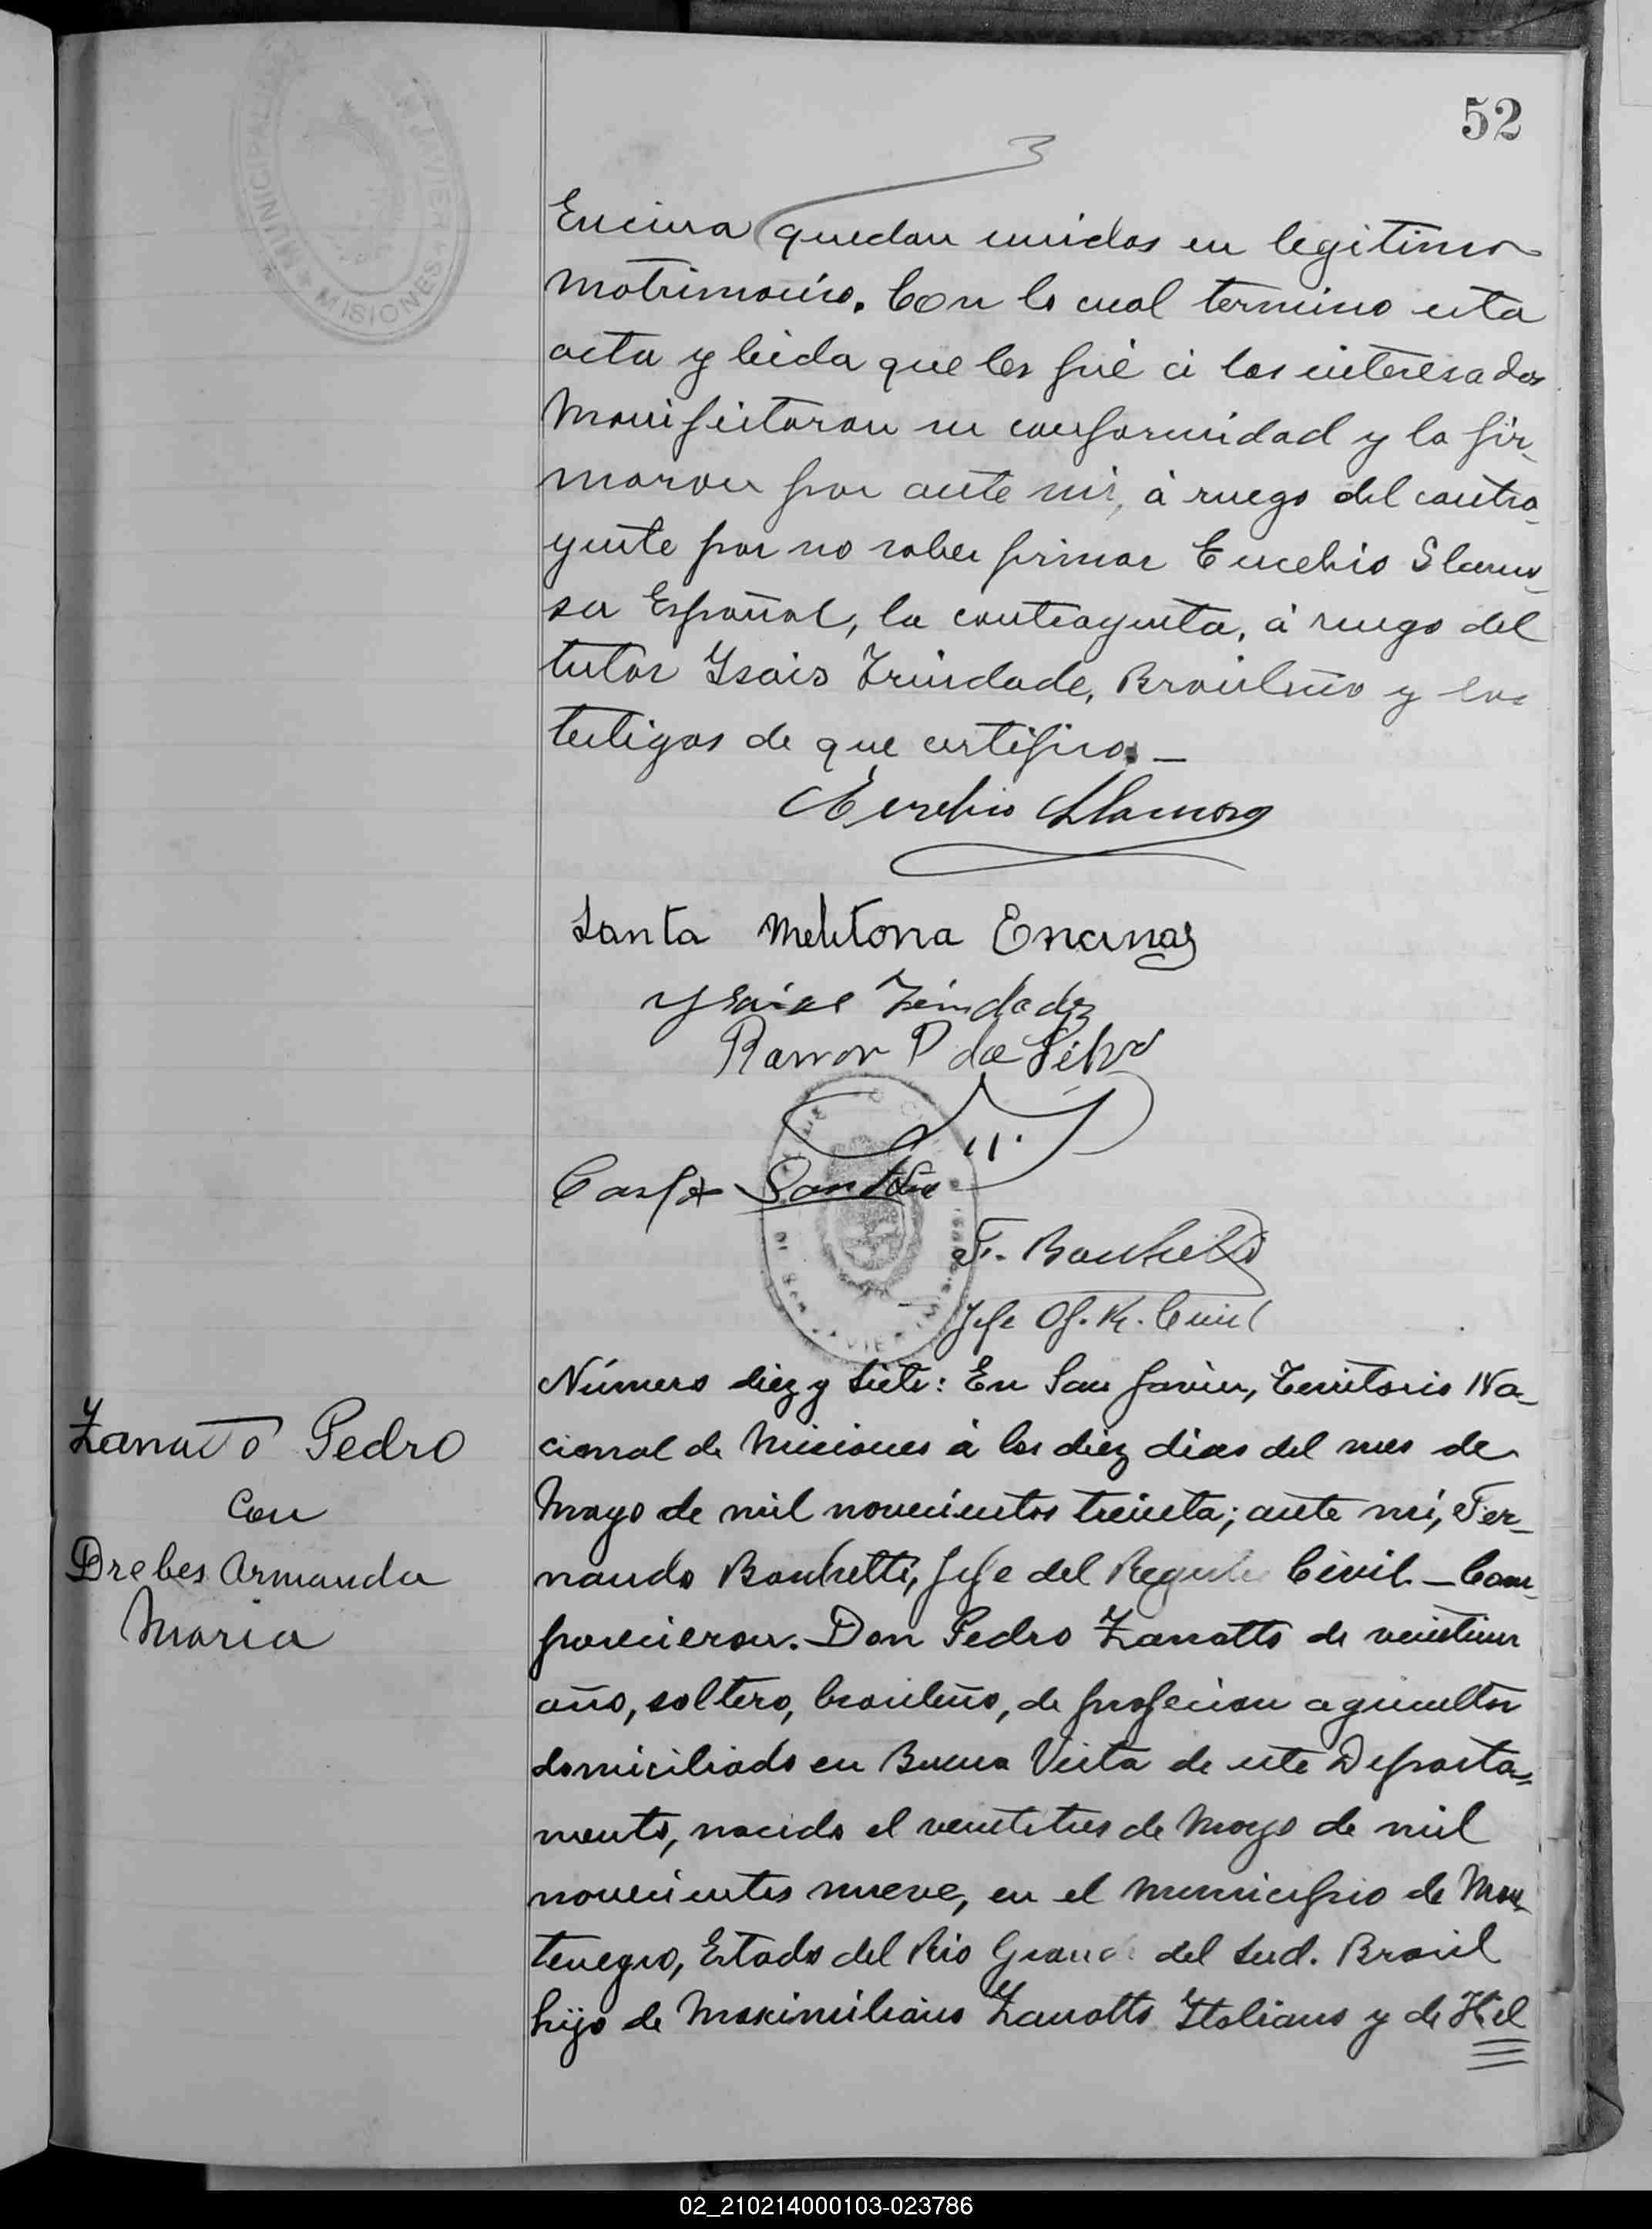 52
3
MUNICIPALIDAD JAVIER
MISIONES
Encina quedan unidos en legitimo
matrimonio. Con lo cual termino esta
acta y leida que les fué á los interesados
manifestaron su conformidad y la fir-
maron por ante mi, á ruego del contra-
yente por no saber firmar Eucebio Llamo-
sa Español, la contrayenta, á ruego del
tutor Ysais Trindade, Brasileño y los
testigos de que certifico. —
Eusebio Llamosa
Santa Melitona Encinas
Ysaias Trindade
Ramon P da Silva
F. Bonhetti
Jefe Of. R. Civil
Zanotto Pedro
con
Drebes Armanda
Maria
Número diez y siete: En San Javier, Territorio Na-
cional de Misiones á los diez dias del mes de
Mayo de mil novecientos treinta; ante mi, Fer-
nando Bonhetti, Jefe del Registro Civil. — Com-
parecieron. Don Pedro Zanotto de veintiun
año, soltero, brasileño, de profecion agricultor
domiciliado en Buena Vista de este Departa-
mento, nacido el veintitres de Mayo de mil
novecientos nueve, en el municipio de Mon-
tenegro, Estado del Rio Grande del Sud. Brasil
hijo de Maximiliano Zanotto Italiano y de Hel
02_210214000103-023786